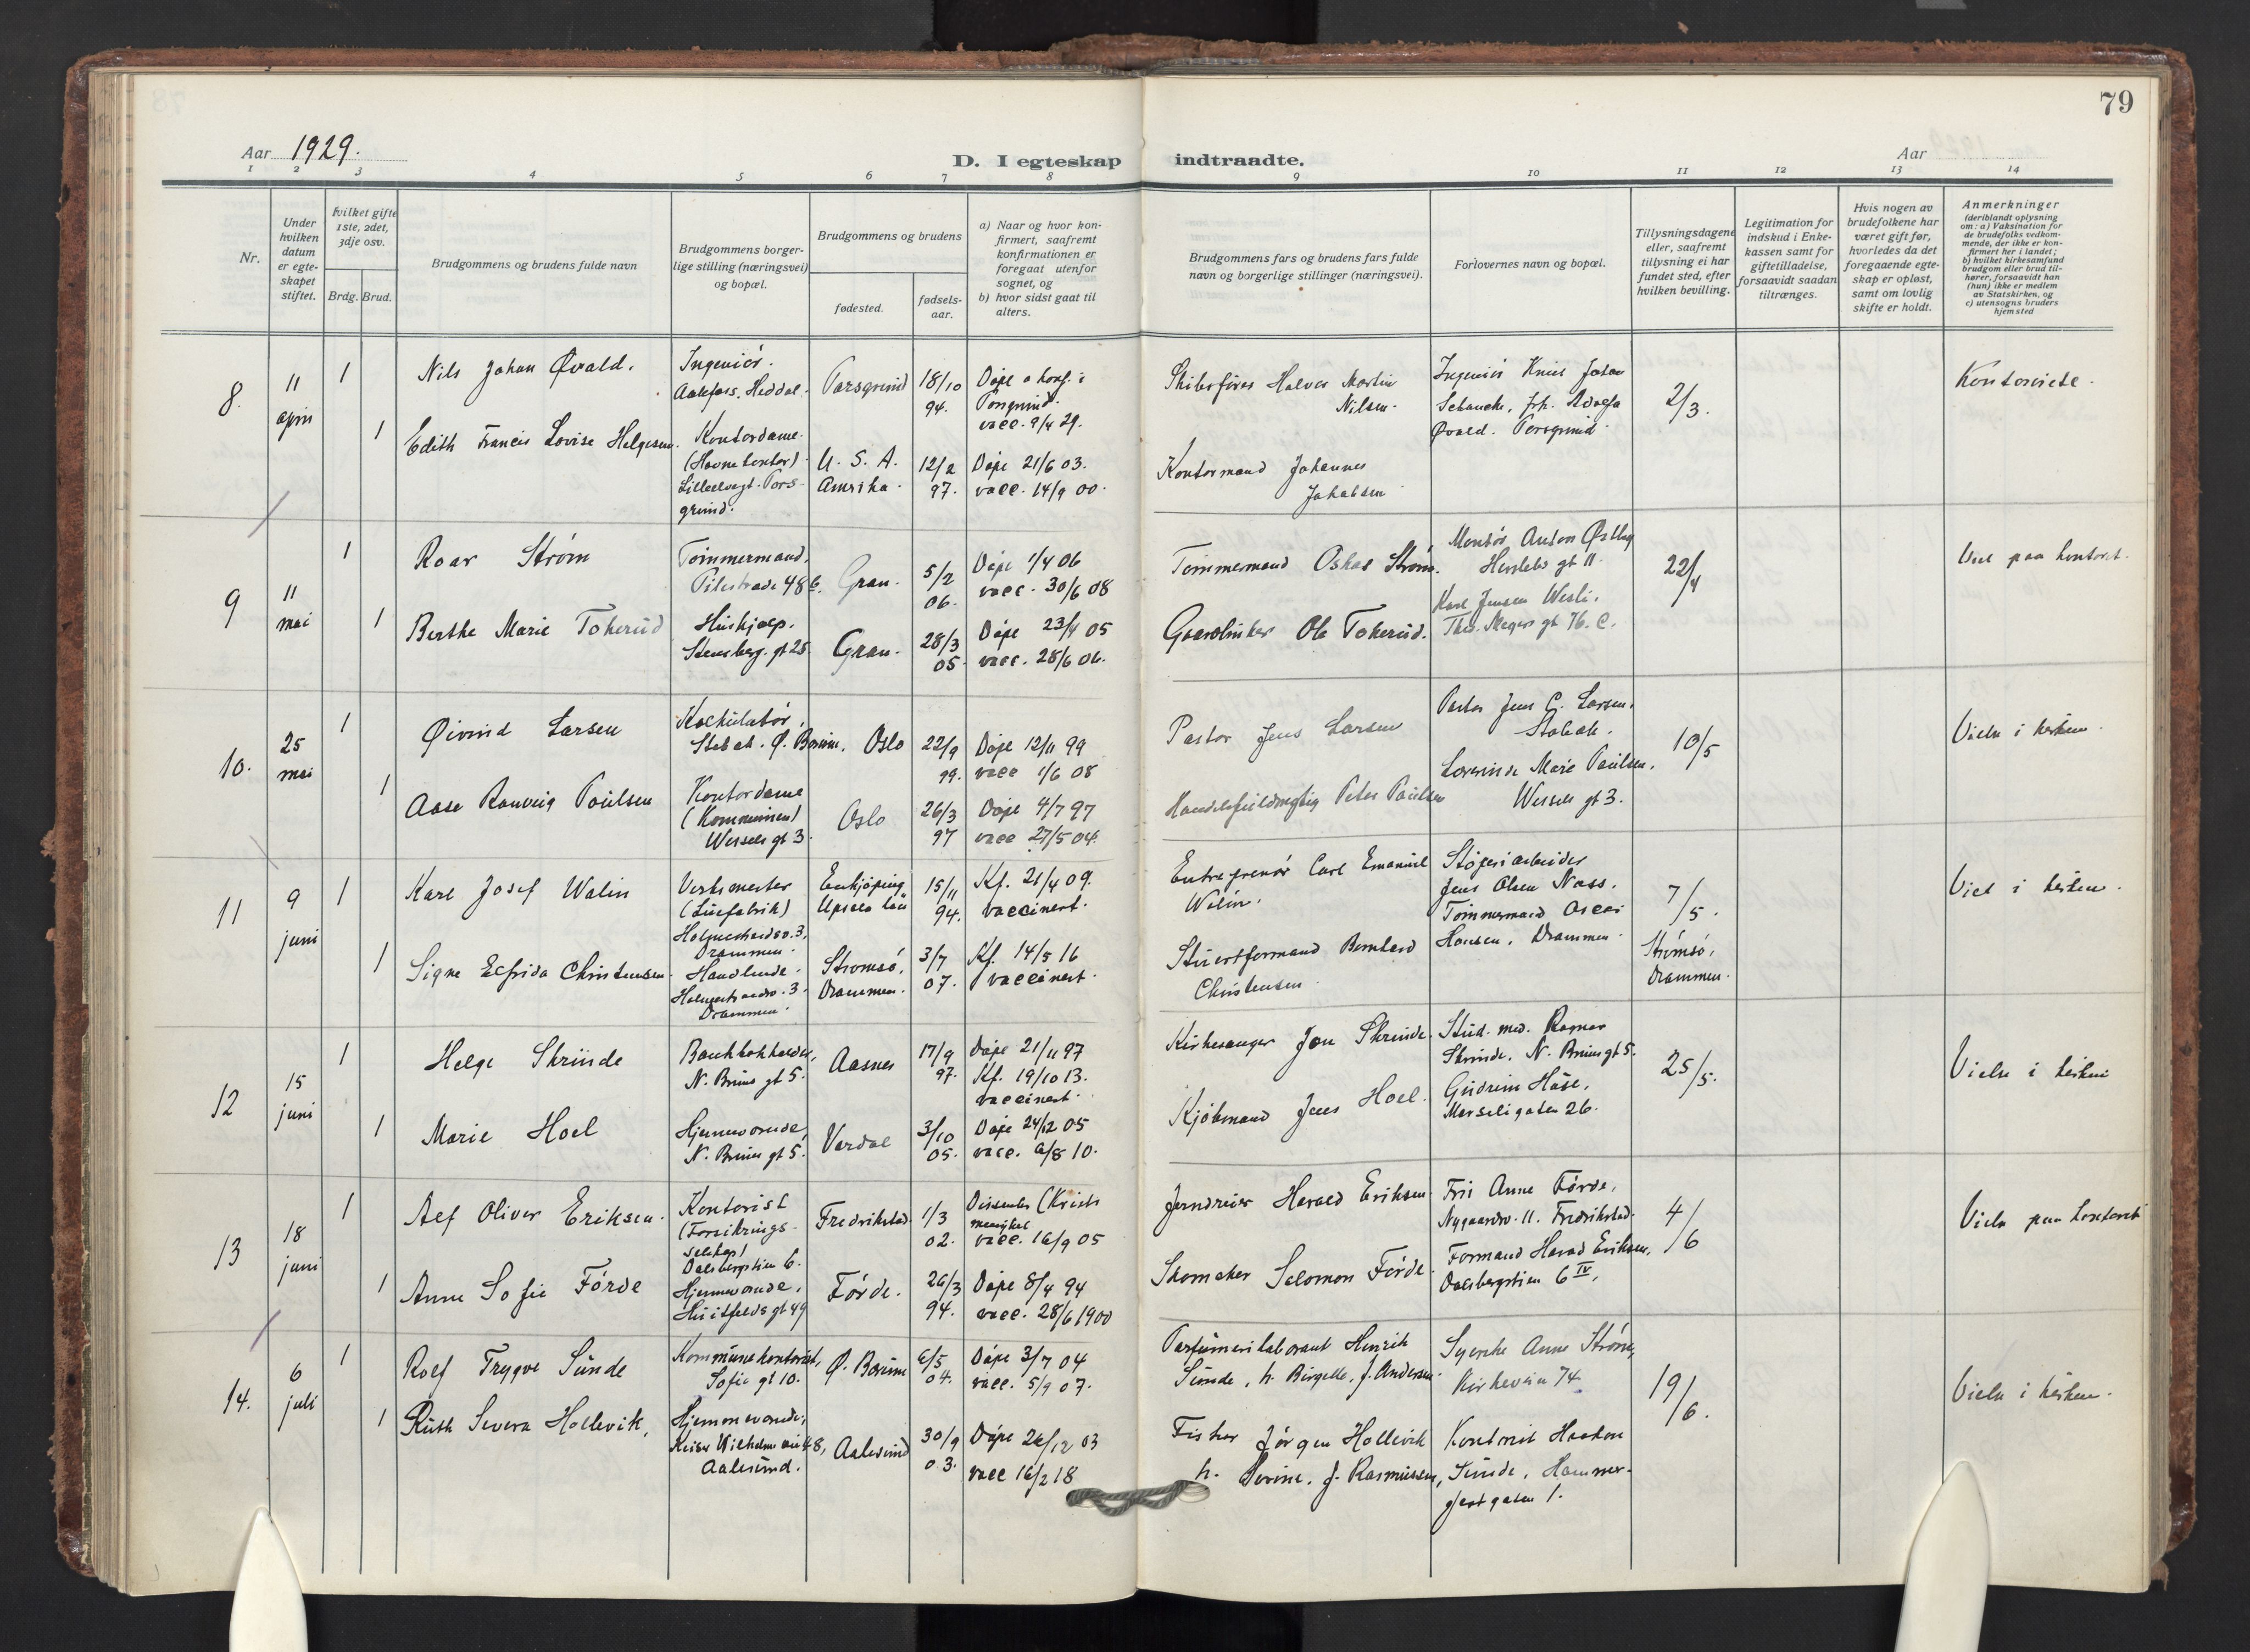 79
Aar 1929.
D. I egteskap indtraadte.
Aar
1 2 3 4 5 6 7 8 9 10 11 12 13 14
Nr.
Under
hvilken
datum
er egte-
skapet
stiftet.
hvilket gifte
1ste, 2det,
3dje osv.
Brdg. Brud.
Brudgommens og brudens fulde navn
Brudgommens borger-
lige stilling (næringsvei)
og bopæl.
Brudgommens og brudens
fødested.
fødsels-
aar.
a) Naar og hvor kon-
firmert, saafremt
konfirmationen er
foregaat utenfor
sognet, og
b) hvor sidst gaat til
alters.
Brudgommens fars og brudens fars fulde
navn og borgerlige stillinger (næringsvei).
Forlovernes navn og bopæl.
Tillysningsdagene
eller, saafremt
tillysning ei har
fundet sted, efter
hvilken bevilling.
Legitimation for
indskud i Enke-
kassen samt for
giftetilladelse,
forsaavidt saadan
tiltrænges.
Hvis nogen av
brudefolkene har
været gift før,
hvorledes da det
foregaaende egte-
skap er opløst,
samt om lovlig
skifte er holdt.
Anmerkninger
(deriblandt oplysning
om: a) Vaksination for
de brudefolks vedkom-
mende, der ikke er kon-
firmert her i landet;
b) hvilket kirkesamfund
brudgom eller brud til-
hører, forsaavidt han
(hun) ikke er medlem
av Statskirken, og
c) utensogns bruders
hjemsted
8.
11
april
1
Nils Johan Øvald.
Ingeniör.
Aalefoss. Heddal.
Porsgrund
18/10
94.
Døpt o konf. i
Porsgrund.
vacc. 9/4 29.
Skibsförer Halvor Martin
Nilsen.
Ingeniör Knut Johan
Schancke, frk. Adolfa
Øvald. Porsgrund.
2/3.
1
Edith Francis Lovise Helgesen.
Kontordame.
(Havnekontor)
Lilleelvegt. Pors-
grund.
U. S. A.
Amerika.
12/2
97.
Döpt 21/6 03.
vacc. 14/9 00.
Kontormand Johannes
Jakobsen
9
11
mai
1
Roar Ström
Tömmermand,
Pilestrade 48
Gran.
5/2
06.
Döpt 1/4 06
vacc. 30/6 08
Tömmermand Oskar Ström.
Montör Anton Østby
Herslebs gt 11.
22/4
Viet paa kontoret.
1
Berthe Marie Tokerud
Huskjælp.
Stensberg. gt 25
Gran.
28/3
05.
Döpt 23/4 05
vacc. 28/6 06.
Gaardbruker Ole Tokerud.
Karl Jensen Wesli.
Thv. Meyers gt 76. C.
10.
25
mai
1
Øivind Larsen
Kalkulatör,
Stabæk. Ø. Bærum.
Oslo
22/9
99.
Döpt 12/11 99
vacc 1/6 08
Pastor Jens Larsen
Pastor Jens C. Larsen,
Stabæk.
10/5
Vielse i kirken.
1
Aase Ranveig Poulsen
Kontordame
(Kommunen)
Wessels gt 3.
Oslo
26/3
97
Döpt 4/7 97
vacc 27/5 04.
Handelsfuldmegtig Peter Poulsen
Lærerinde Marie Poulsen,
Wessels gt 3.
11
9
juni
1
Karl Josef Walin
Verksmester
(Luefabrik)
Holmestrandsv. 3,
Drammen.
Enkjöping
Upsala län
15/11
94.
Kf. 21/4 09.
vaccinert.
Entreprenör Carl Emanuel
Walin.
Støperiarbeider
Jens Olsen Næss.
Tömmermand Oscar
Hansen. Drammen.
7/5.
Strömsö,
Drammen.
Viet i kirken.
1
Signe Elfrida Christensen.
Handlende.
Holmestrandsv. 3.
Drammen.
Strömsö,
Drammen.
3/7
07.
Kf. 14/5 16
vaccinert.
Stuertformand Bernhard
Christensen
12
15
juni
1
Helge Skrinde
Bankbokholder,
N. Bruns gt 5.
Aasnes
17/9
97.
Döpt 21/11 97
Kf. 19/10 13.
vaccinert.
Kirkesanger Jon Skrinde.
Stud. med. Ragnar
Skrinde. N. Bruns gt 5.
25/5.
Vielse i kirken
1
Marie Hoel
Hjemmeværende,
N. Bruns gt 5.
Vardal
3/10
05.
Döpt 24/12 05
vacc. 6/8 10.
Kjöbmand Jens Hoel.
Gudrun
Marseligaten 26.
13
18
juni
1
Alf Oliver Eriksen.
Kontorist
(Forsikrings-
selskap)
Dalsbergstien 6.
Fredrikstad
1/3
02.
Dissenter
vacc. 16/9 05
Jerndreier Harald Eriksen.
Frk Anne Förde,
Nygaardsv. 11. Fredrikstad.
4/6
Vielse paa kontoret
1
Anne Sofie Förde
Hjemmeværende,
Huitfelds gt 49
Förde.
26/3
94.
Döpt 8/4 94
vacc. 28/6 1900
Skomaker Salomon Förde.
Formand Harald Eriksen,
Dalsbergstien 6 IV.
14.
6
juli
1
Rolf Trygve Sunde
Kommunekontorist,
Sofie gt 10.
Ø. Bærum
6/5
04.
Döpt 3/7 04
vacc. 5/9 07.
Parfumerilaborant Henrik
Sunde, h. Birgitte, f. Andersen.
Syerske Anne Ström,
Kirkeveien 74
19/6.
Vielse i kirken.
1
Ruth Severa Hollevik,
Hjemmeværende,
Keiser Wilhelms 48,
Aalesund.
Aalesund
30/9
03.
Döpt 26/12 03
vacc 16/2 18
Fisker Jörgen Hollevik
h. Severine, f. Rasmussen,
Kontorist Haakon
Sunde, Hammer-
festgaten 1.